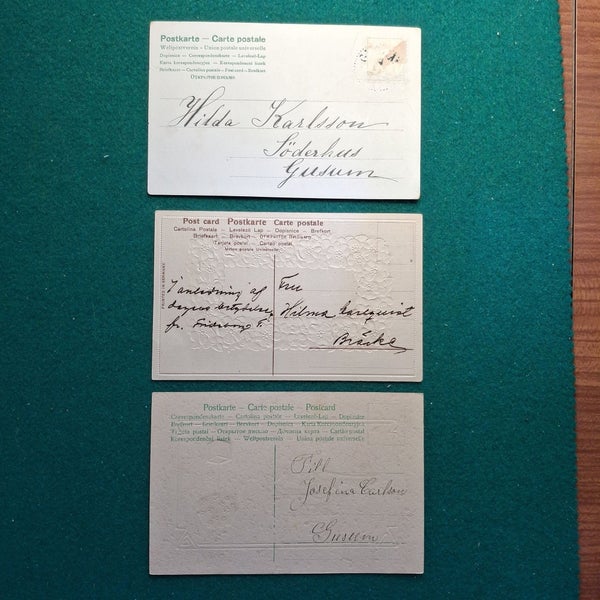 Postkarte — Carte postale
Weltpostverein - Union postale universelle
Dopisnice - Correspondenzkarte - Levelező-Lap
Karta korespondencyjna - Korespondenční lístek
Briefkaart - Cartolina postale - Post-card - Brefkort
Открытое письмо
Hilda Karlsson
Söderhus
Gusum
Post card Postkarte Carte postale
Cartolina Postale — Levelező Lap — Dopisnice — Brefkort
Briefkaart — Brevkort — Открытое Письмо
Tarjeta postal — Cartão postal
Union postale Universelle
PRINTED IN GERMANY
I anledning af
fr.
Fru
Hilma Carlquist
Bräcke
Postkarte — Carte postale — Postcard
Correspondenzkarte — Cartolina postale — Levelező-Lap — Dopisnice
Brefkort — Briefkaart — Brevkort — Dopisnica — Karta Korespondencyjna
Tarjeta postal — Открытое письмо — Дописна карта — Cartão postal
Korespondenční lístek — Weltpostverein — Union postale universelle
Till
Josefina Carlson
Gusum